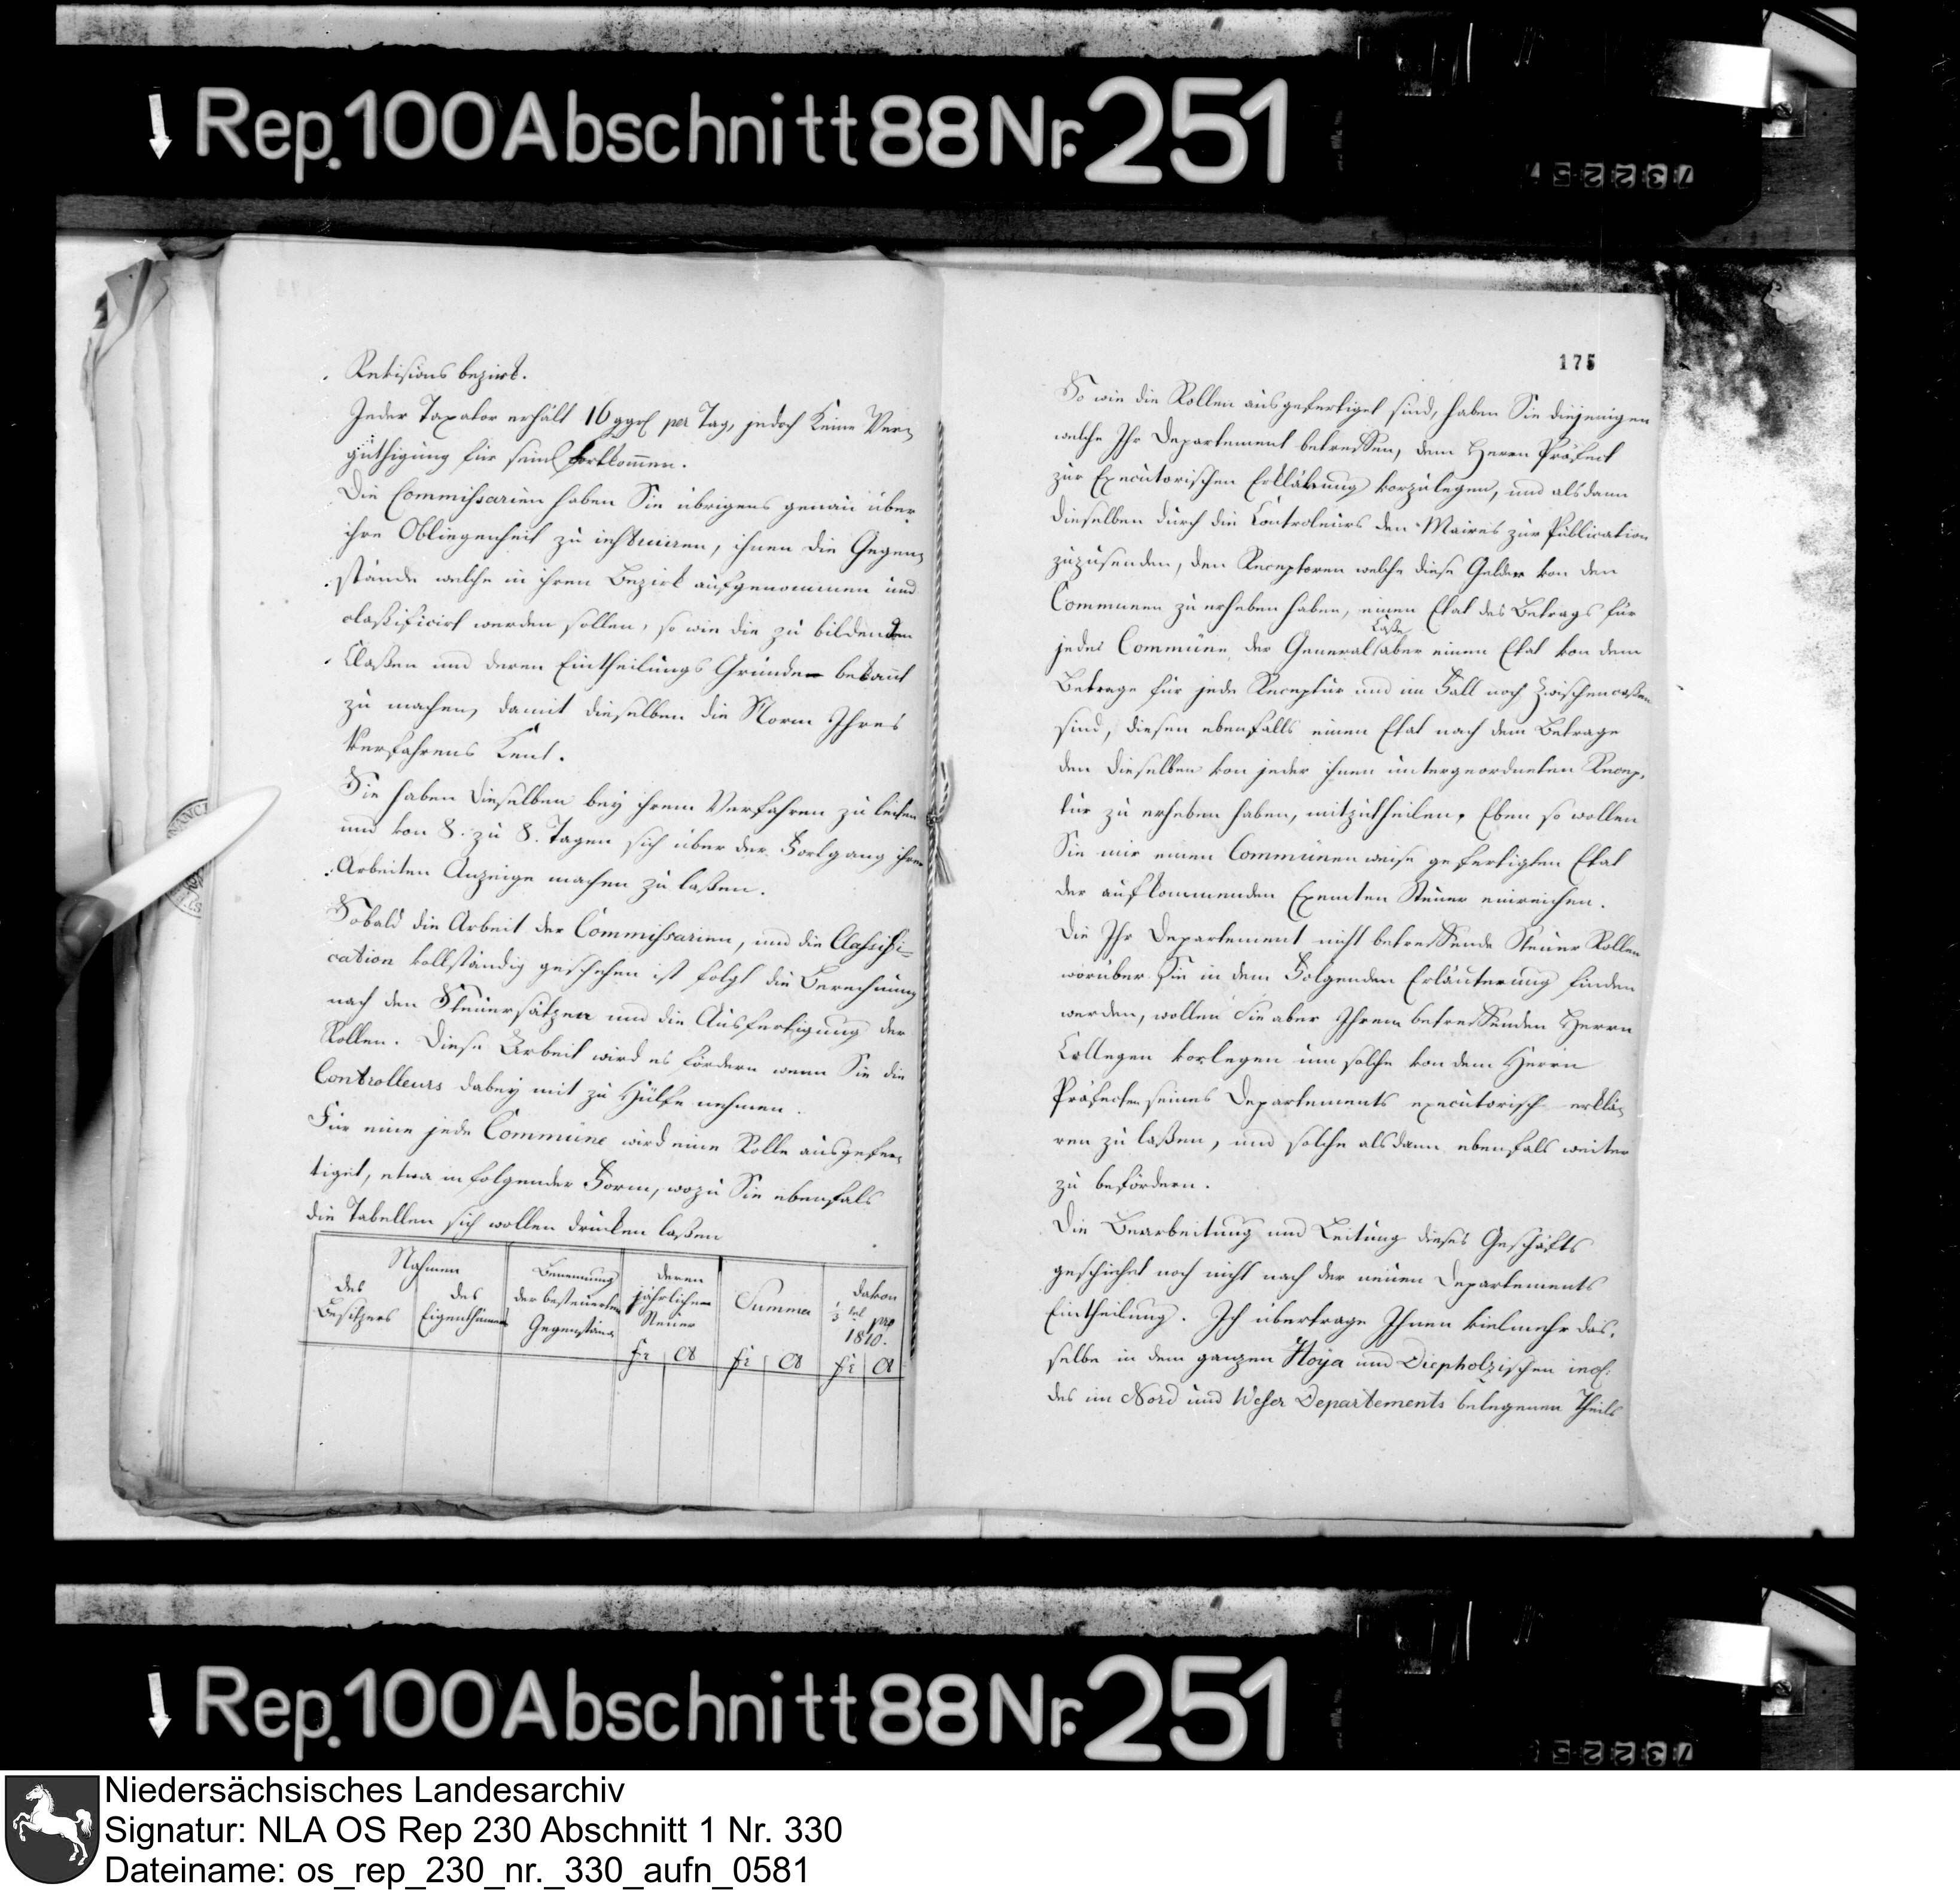 Rep. 100 Abschnitt 88 Nr. 251
732257
Revisions bezirk.
Jeder Taxator erhält 16 ggr per Tag, jedoch keine Ver-
güthigung für sein Fortkom̄en.
Die Commissarien haben Sie übrigens genau über
ihre Obliegenheit zu instruiren, ihnen die Gegen-
stände welche in ihren Bezirk aufgenommen und
classificirt werden sollen, so wie die zu bildenden
Classen und deren Eintheilungs Gründe bekan̄t
zu machen, damit dieselben die Norm Ihres
Verfahrens Kent.
Sie haben dieselben bey ihrem Verfahren zu leiten
und von 8. zu 8. Tagen sich über der Fortgang ihrer
Arbeiten Anzeige machen zu laßen.
Sobald die Arbeit der Commissarien, und die Classifi-
cation vollständig geschehen ist folgt die Berechnung
nach den Steuersätzen und die Ausfertigung der
Rollen. Diese Arbeit wird es fördern wenn Sie die
Controlleurs dabey mit zu Hülfe nehmen.
Für eine jede Commüne wird eine Rolle ausgefer-
tiget, etwa in folgender Form, wozu Sie ebenfals
die Tabellen sich wollen drucken laßen
Nahmen
des Besitzers
des Eigenthümers
Benennung der besteuerten Gegenstände
deren jährlichen Steuer
Summa
davon 1/3 tel pro 1810.
fr Ct fr Ct fr Ct
175
So wie die Rollen ausgefertiget sind, haben Sie diejenigen
welche Ihr Departement betreffen, dem Herrn Präfect
zur Executorischen Erklärung vorzulegen, und alsdann
dieselben durch die Controleurs den Maires zur Publication
zuzusenden, den Receptoren welche diese Gelder von den
Communen zu erheben haben, einen Etat des Betrags für
Casse
jedes Commüne, der General aber einen Etat von dem
Betrage für jede Receptur und im Fall noch Zwischencaßen
sind, diesen ebenfalls einen Etat nach dem Betrage
den dieselben von jeder ihnen untergeordneten Recep-
tur zu erheben haben, mitzutheilen, Eben so wollen
Sie mir einen Communen weise gefertigten Etat
der aufkommenden Exemten Steuer einreichen.
Die Ihr Departement nicht betreffende Steuer Rollen
worüber Sie in dem Folgenden Erläuterung finden
werden, wollen Sie aber Ihrem betreffenden Herrn
Collegen vorlegen um solche von dem Herrn
Präfecten seines Departements executorisch erklä-
ren zu laßen, und solche alsdann ebenfals weiter
zu befördern.
Die Bearbeitung und Leitung dieses Geschäfts
geschiehet noch nicht nach der neuen Departements
Eintheilung. Ich übertrage Ihnen vielmehr das-
selbe in dem ganzen Hoya und Diepholzischen incl:
des im Nord und Weser Departements belegenen Theils
Rep. 100 Abschnitt 88 Nr. 251
73225
Niedersächsisches Landesarchiv
Signatur: NLA OS Rep 230 Abschnitt 1 Nr. 330
Dateiname: os_rep_230_nr._330_aufn_0581